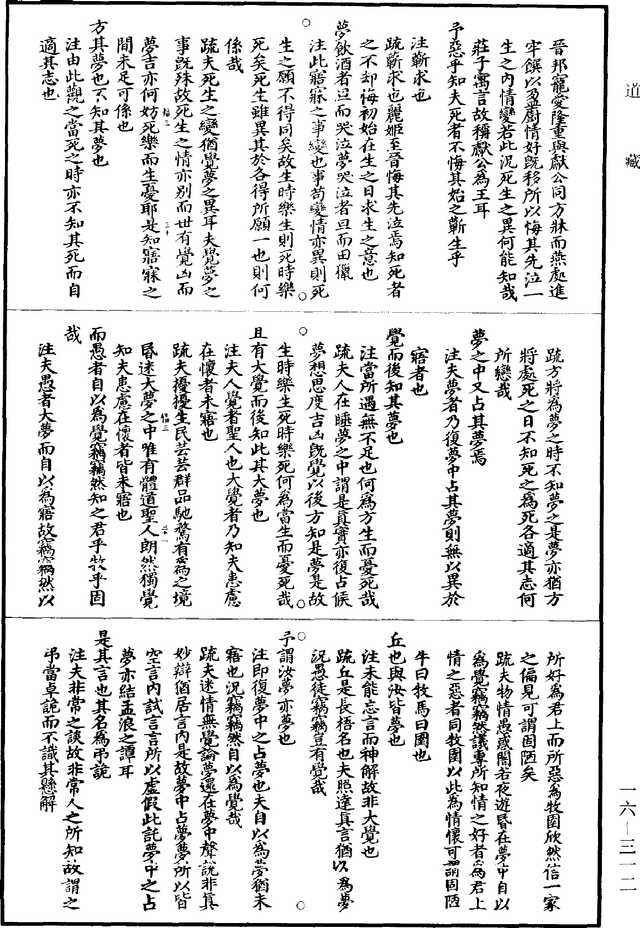 道藏
晉邦寵愛隆重與獻公同方牀而燕處進
牢饌以盈廚情好既移所以悔其先泣一
生之內情變若此況死生之異何能知哉
莊子寓言故稱獻公為王耳
予惡乎知夫死者不悔其始之蘄生乎
注蘄求也
疏蘄求也麗姬至晉悔其先泣焉知死者
之不却悔初始在生之日求生之意也
夢飲酒者旦而哭泣夢哭泣者旦而田獵
注此寤寐之事變也事苟變情亦異則死
生之願不得同矣故生時樂生則死時樂
死矣死生雖異其於各得所願一也則何
係哉
疏夫死生之變猶覺夢之異耳夫覺夢之
事既殊故死生之情亦別而世有覺凶而
夢吉亦何妨死樂而生憂耶是知寤寐之
間未足可係也
方其夢也不知其夢也
注由此觀之當死之時亦不知其死而自
適其志也
疏方將為夢之時不知夢之是夢亦猶方
將處死之日不知死之為死各適其志何
所戀哉
夢之中又占其夢焉
注夫夢者乃復夢中占其夢則無以異於
寤者也
覺而後知其夢也
注當所遇無不足也何為方生而憂死哉
疏夫人在睡夢之中謂是真實亦復占候
夢想思度吉凶既覺以後方知是夢是故
生時樂生死時樂死何為當生而憂死哉
且有大覺而後知此其大夢也
注夫大覺者聖人也大覺者乃知夫患慮
在懷者未寤也
疏夫擾擾生民芸芸群品馳騖有為之境
昏迷大夢之中唯有體道聖人朗然獨覺
知夫患慮在懷者皆未寤也
而愚者自以為覺竊竊然知之君乎牧乎固
哉
注夫愚者大夢而自以為寤故竊竊然以
所好為君上而所惡為牧圉欣然信一家
之偏見可謂固陋矣
疏夫物情愚惑闇若夜遊昏在夢中自以
為覺竊竊然議專所知情之好者為君上
情之惡者同牧圉以此為情懷可謂固陋
牛曰牧馬曰圉也
丘也與汝皆夢也
注未能忘言而神解故非大覺也
疏丘是長梧名也夫照達真言猶以為夢
況愚徒竊竊豈有覺哉
予謂汝夢亦夢也
注即復夢中之占夢也夫自以為夢猶未
寤也況竊竊然自以為覺哉
疏夫迷情無覺論夢還在夢中聲說非真
妙辯猶居言內是故夢中占夢夢所以皆
空言內試言言所以虛假此託夢中之占
夢亦結孟浪之譚耳
是其言也其名為弔詭
注夫非常之談故非常人之所知故謂之
弔當卓詭而不識其懸解
一六—三一二